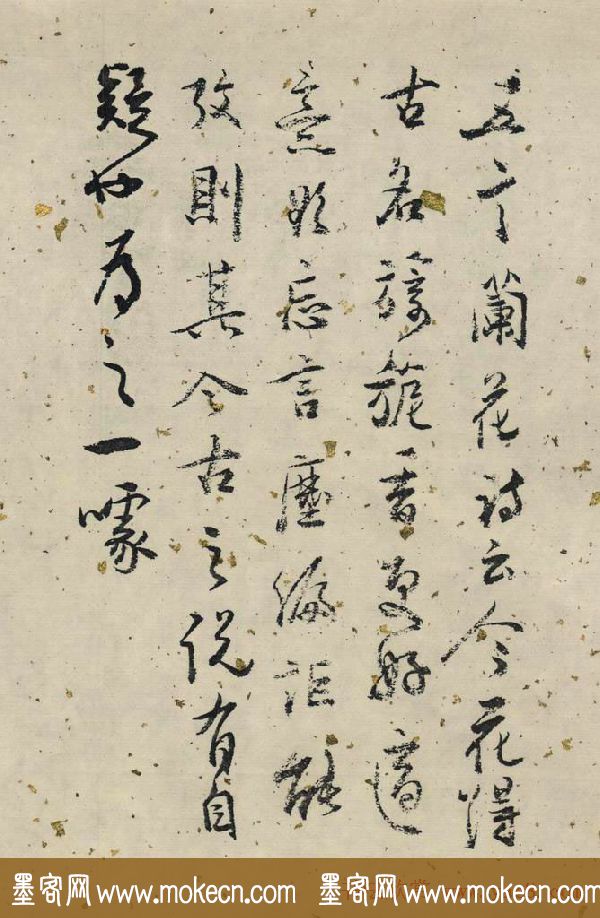 五言蘭花詩云今花得
古名旖旎香更好適
意欲忘言塵編詎能
攷則其今古之說有自
疑也為之一噱
墨客网www.mokecn.com 墨客网www.mokecn.com